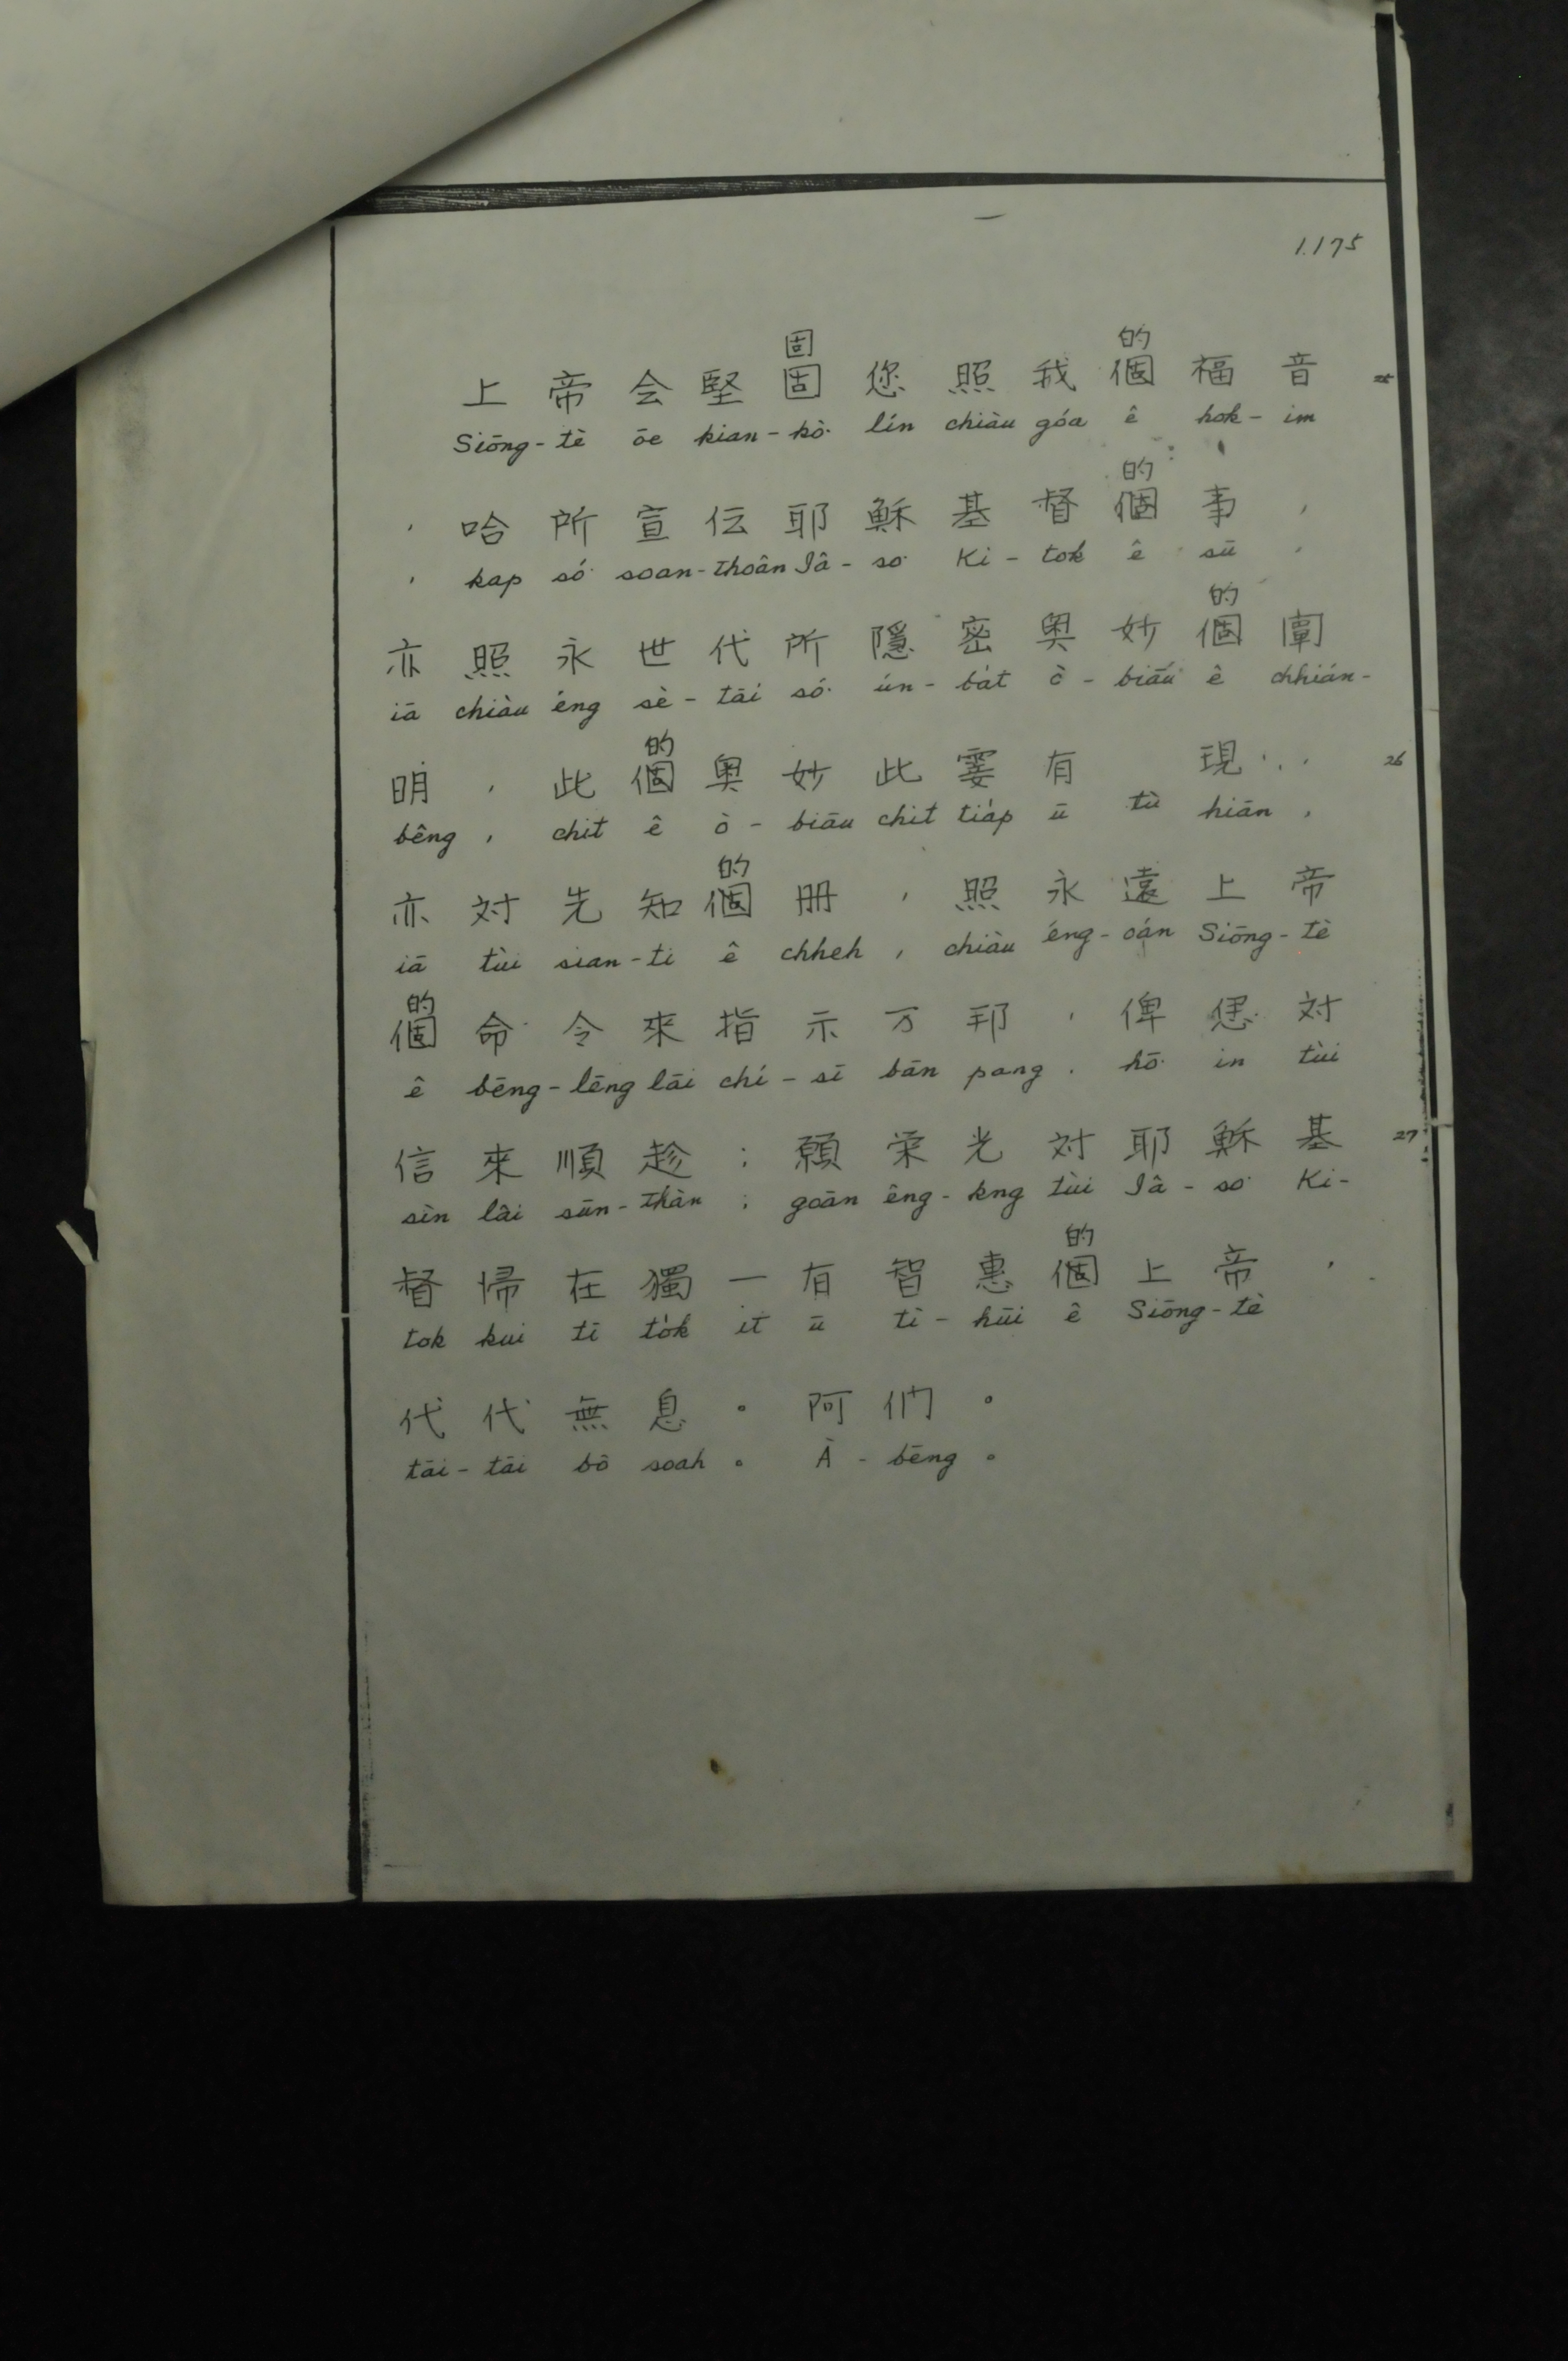 1.175
固 的
上帝会堅固您照我個福音 25
Siōng-tè ōe kian-kò͘ lín chiàu góa ê hok-im
的
，哈所宣伝耶穌基督個事，
， kap só͘ soan-thoân Iâ-so͘ Ki-tok ê sū ，
的
亦照永世代所隱密奧妙個闡
iā chiàu éng sè-tāi só͘ ún-ba̍t ò-biāu ê chhián-
的
明，此個奧妙此霎有 現， 26
bêng , chit ê ò-biāu chit tia̍p ū tù hiān ,
的
亦対先知個冊，照永遠上帝
iā tùi sian-ti ê chheh , chiàu éng-oán Siōng-tè
的
個命令來指示万邦，俾𪜶対
ê bēng-lēng lâi chí-sī bān pang . hō͘ in tùi
信來順趁；願栄光対耶穌基 27
sìn lâi sūn-thàn ; goān êng-kng tùi Iâ-so͘ Ki-
的
督帰在獨一有智惠個上帝，
tok kui tī to̍k it ū tì-hūi ê Siōng-tè
代代無息。阿們。
tāi-tāi bô soah 。 À-bēng 。